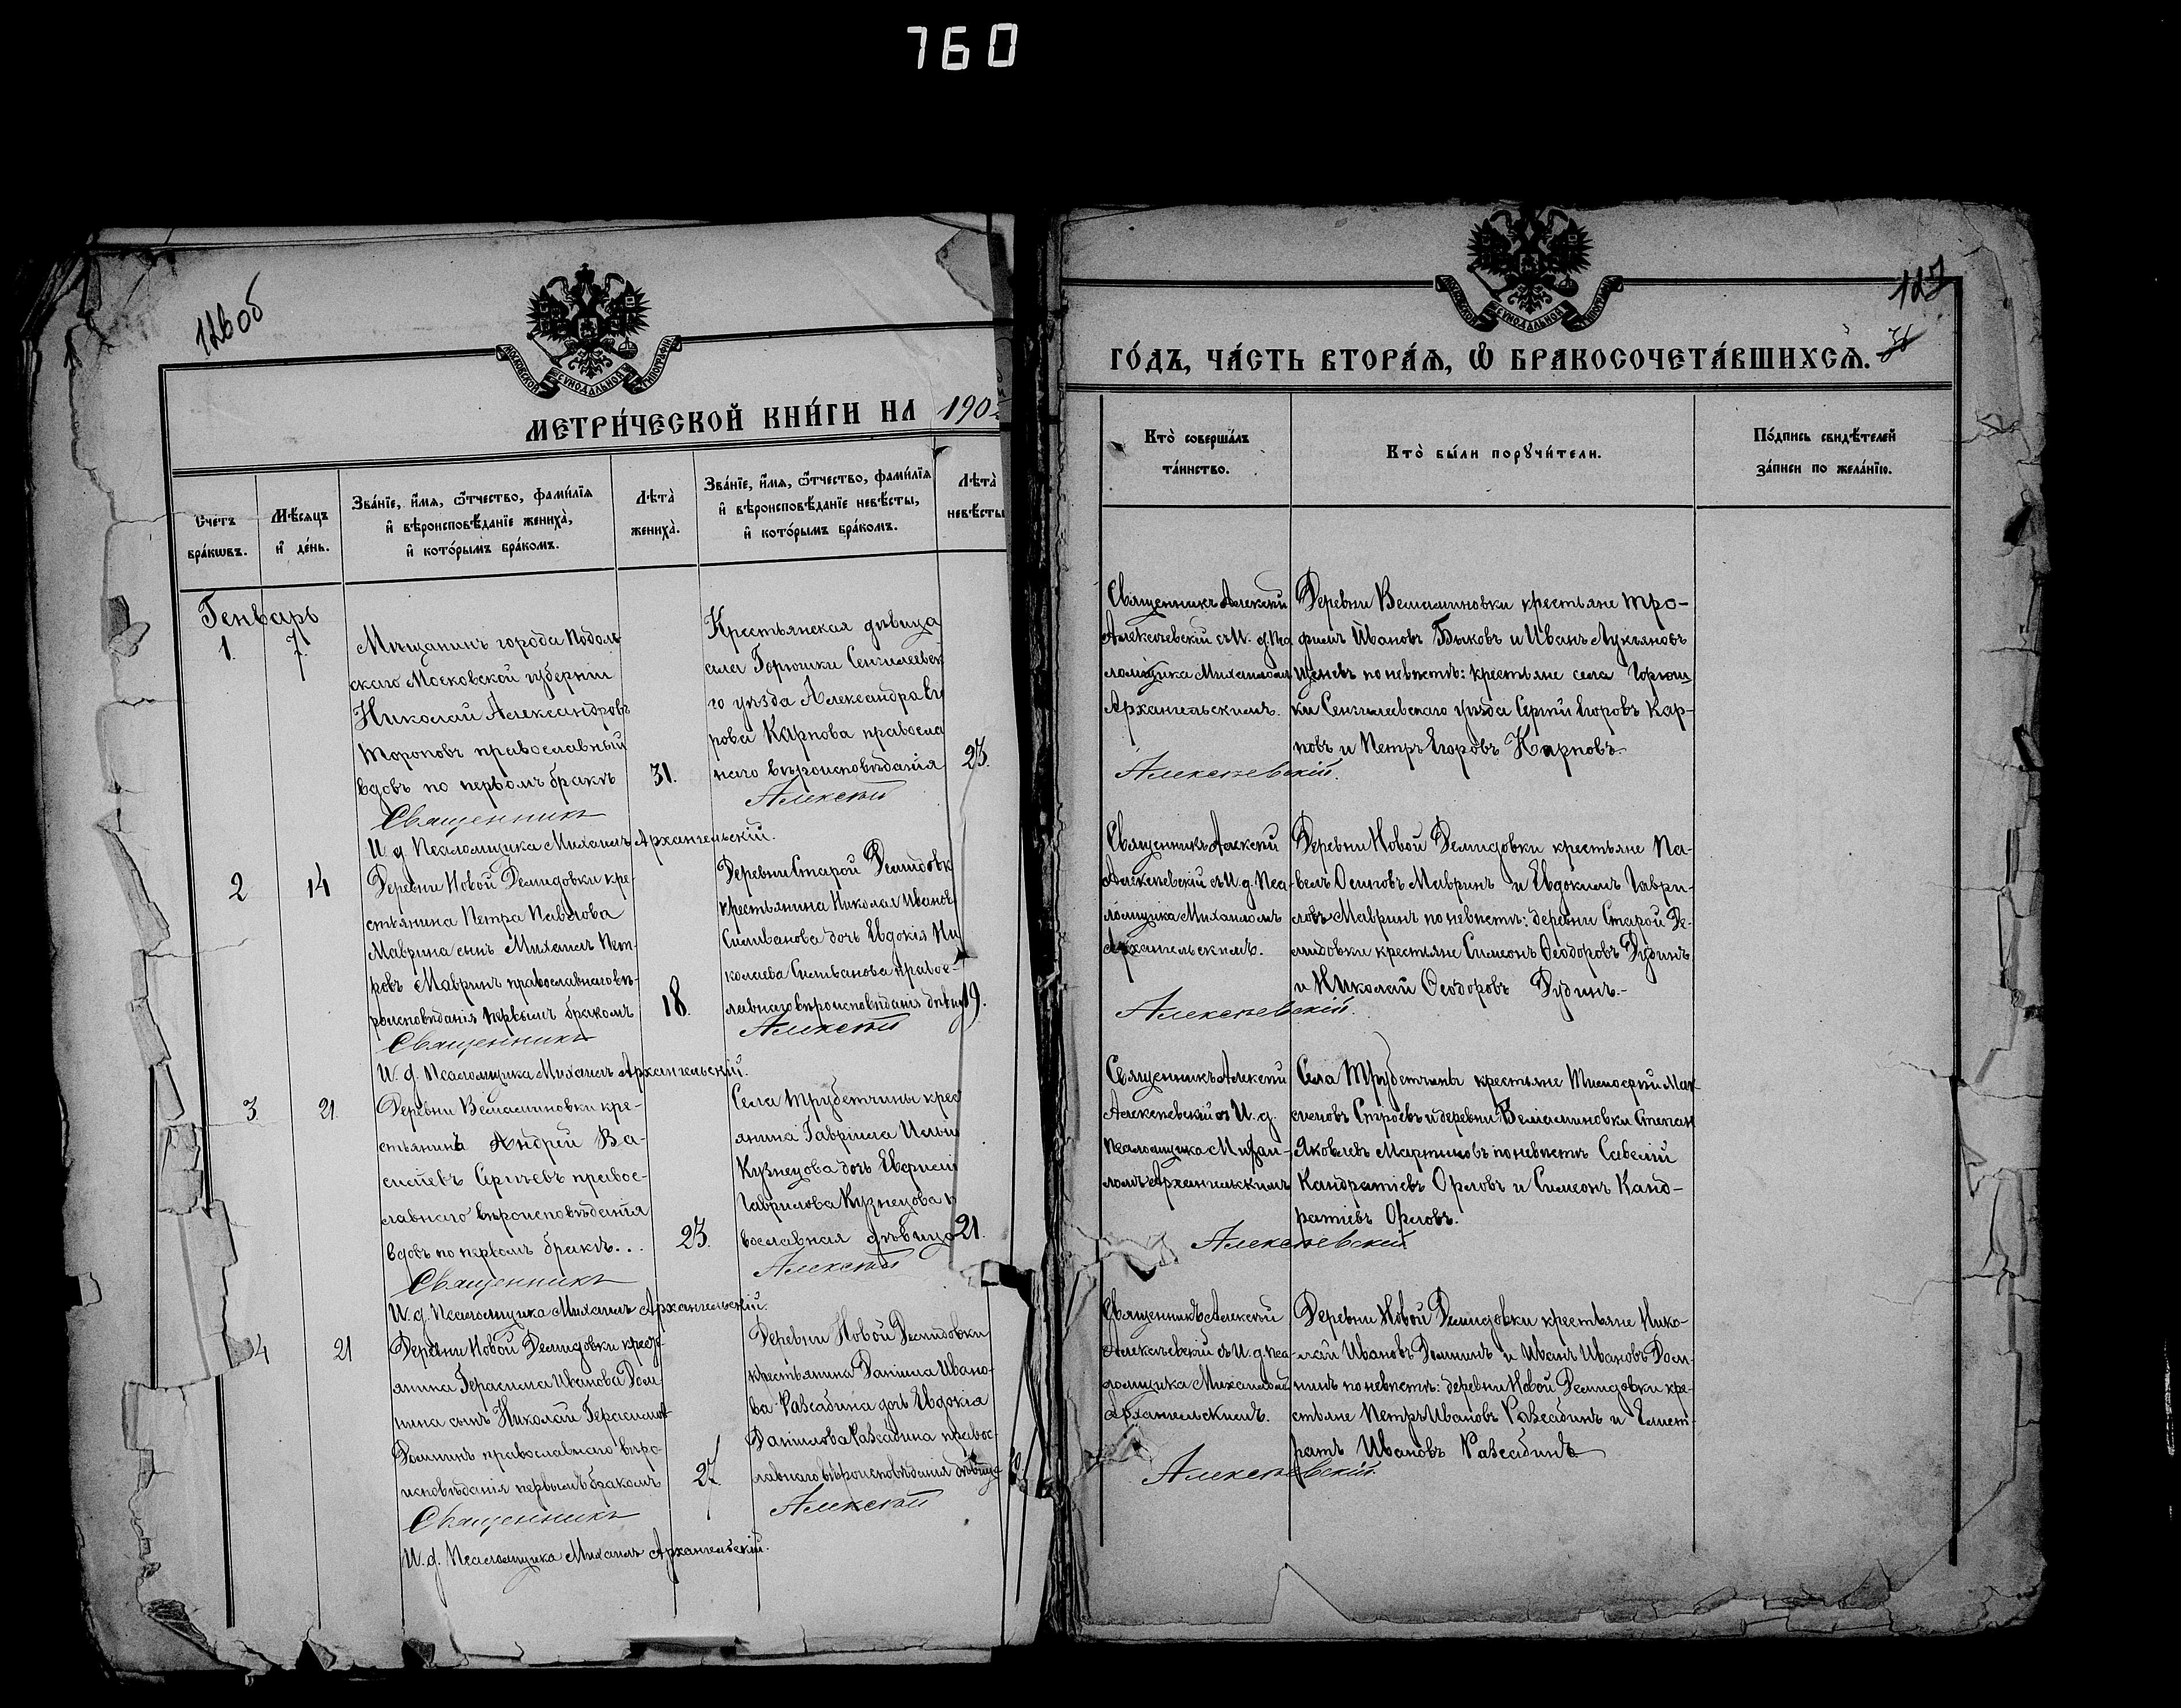 760
126об
МОСКОВСКОЙ СѴНОДАЛЬНОЙ ТИПОГРАФІИ
МЕТРИ́ЧЕСКОЙ КНИ́ГИ НА 190
Счетъ бра́кѡвъ.
Мѣ́сяцъ и҆ де́нь.
Зва́нїе, и҆́мѧ, ѻ҆́тчество, фами́лїѧ
и҆ вѣроисповѣ́данїе жениха̀,
и҆ кото́рымъ бра́комъ.
Лѣта̀ жениха̀.
Зва́нїе, и҆́мѧ, ѻ҆́тчество, фами́лїѧ
и҆ вѣроисповѣ́данїе невѣ́сты,
и҆ кото́рымъ бра́комъ.
Лѣта̀ невѣ́сты
Генварь
1. 7.
Мѣщанинъ города Подоль
скаго Московской губерніи
Николай Александровъ
Тороповъ православный
вдовъ по первомъ бракѣ
31.
Крестьянская дѣвица
села Горюшки Сенгилеевск
го уѣзда Александра Ег
рова Карпова православ
наго вѣроисповѣданія
23.
Священникъ Алексѣй
И д Псаломщика Михаилъ Архангельскій.
2 14
Деревни Новой Демидовки кре-
стьянина Петра Павлова
Маврина сынъ Михаилъ Пет-
ровъ Мавринъ православнаго вѣ-
роисповѣданія первымъ бракомъ
18.
Деревни Старой Демидовк
крестьянина Николая Иванов
Силиванова дочь Евдокія Ни
колаева Силиванова правос-
лавнаго вѣроисповѣданія дѣвиц
19.
Священникъ Алексѣй
И. д. Псаломщика Михаилъ Архангельскій.
3 21.
стьянинъ Андрей Ва-
сильевъ Сергѣевъ правос-
лавнаго вѣроисповѣданія
вдовъ по первомъ бракѣ...
23.
Села Трубетчины крес
янина Гавріила Ильи
Кузнецова дочь
Гаврилова Кузнецова п
вославная дѣвица
21.
Священникъ Алексѣй
И. д. Псаломщика Михаилъ Архангельскій.
4 21
Деревни Новой Демидовки крест-
янина Герасима Иванова Дом
нина сынъ Николай Герасимов
Домнинъ православнаго вѣро-
исповѣданія первымъ бракомъ
27.
Деревни Новой Демидовки
крестьянина Даніила Ивано-
ва дочь Евдокія
Даніилова правос-
лавнаго вѣроисповѣданія дѣвица
Священникъ Алексѣй
И. д. Псаломщика Михаилъ Архангельскій.
127
МОСКОВСКОЙ СѴНОДАЛЬНОЙ ТИПОГРАФІИ
ГО́ДЪ, ЧА́СТЬ ВТОРА́Ѧ, Ѡ҆ БРАКОСОЧЕТА́ВШИХСѦ.
Кто̀ соверша́лъ та́инство.
Кто̀ бы́ли порꙋчи́тели.
По́дпись свидѣ́телей за́писи по жела́нїю.
Священникъ Алексѣй
Алексѣевскій съ И. д. Пса
ломщика Михаиломъ
Архангельскимъ.
Деревни крестьяне Тро-
фимъ Ивановъ Быковъ и Иванъ Лукьяновъ
по невѣстѣ: крестьяне села Горюш-
ки Сенгилеевскаго уѣзда Сергѣй Егоровъ Кар-
повъ и Петръ Егоровъ Карповъ.
Алексѣевскій.
Священникъ Алексѣй
Алексѣевскій съ И. д. Пса-
ломщика Михаиломъ
Архангельскимъ.
Деревни Новой Демидовки крестьяне Па-
велъ Осиповъ Мавринъ и Евдокимъ Гаври-
ловъ Мавринъ по невѣстѣ: деревни Старой Де-
мидовки крестьяне Симеонъ Ѳеодоровъ Дудинъ
и Николай Ѳеодоровъ Дудинъ.-
Алексѣевскій.
Священникъ Алексѣй
Алексѣевскій съ И. д.
Псаломщика Михаи-
ломъ Архангельскимъ
Села Трубетчины крестьяне Тимофей Мак
симовъ Строевъ и деревни Степан
Яковлевъ Мартыновъ по невѣстѣ Савелій
Кандратіевъ Орловъ и Симеонъ Канд-
ратіевъ Орловъ.
Алексѣевскій
Священникъ Алексѣй
Алексѣевскій съ И. д. Пса-
ломщика Михаиломъ
Архангельскимъ.
Деревни Новой Демидовки крестьяне Нико-
лай Ивановъ Домнинъ и Иванъ Ивановъ Дом-
нинъ по невѣстѣ: деревни Новой Демидовки кре-
стьяне Петръ Ивановъ и
Ивановъ
Алексѣевскій.